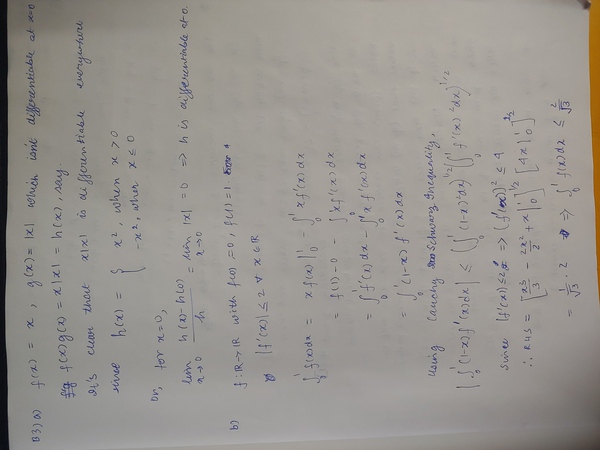 Q3) a) f(x) = x, g(x) = |x| which isn't differentiable at x=0
f(x)g(x) = x|x| = h(x), say.
It's clear that x|x| is differentiable everywhere
since h(x) = { x², when x > 0
-x², when x ≤ 0
Or, for x=0,
lim x→0 (h(x) - h(0))/h = lim x→0 |x| = 0 ⇒ h is differentiable at 0.
b) f: ℝ→ℝ with f(0) = 0, f(1) = 1.
|f'(x)| ≤ 2 ∀ x ∈ ℝ
∫₀¹ f(x)dx = x f(x)|₀¹ - ∫₀¹ x f'(x) dx
= f(1) - 0 - ∫₀¹ x f'(x) dx
= ∫₀¹ f'(x) dx - ∫₀¹ x f'(x) dx
= ∫₀¹ (1-x) f'(x) dx
Using Cauchy Schwarz Inequality,
|∫₀¹ (1-x) f'(x) dx| ≤ (∫₀¹ (1-x)² dx)^1/2 (∫₀¹ f'(x)² dx)^1/2
Since |f'(x)| ≤ 2 ⇒ (f'(x))² ≤ 4
∴ RHS = [x³/3 - 2x²/2 + x |₀¹]^1/2 [4x|₀¹]^1/2
= 1/√3 · 2 ⇒ ∫₀¹ f(x) dx ≤ 2/√3